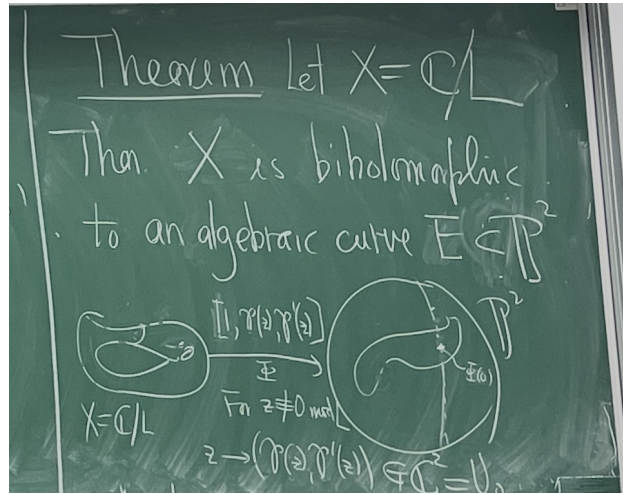 Theorem Let X = ℂ/L
Then X is biholomorphic
to an algebraic curve E ⊂ ℙ²
[1, ℘(z), ℘'(z)]
Φ
ℙ²
0
Φ(0)
X = ℂ/L
For z ≢ 0 mod L
z → (℘(z), ℘'(z)) ∈ ℂ² = U₀